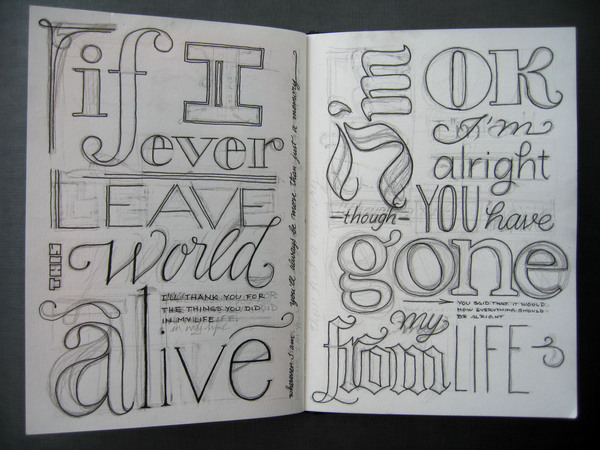 if I
ever
LEAVE
THIS world
I'LL THANK YOU FOR
THE THINGS YOU DID
IN MY LIFE
in my life
alive
wherever I am you'll always be more than just a memory
I'm OK
I'm
alright
though YOU have
gone
YOU SAID THAT IT WOULD
NOW EVERYTHING SHOULD
BE ALRIGHT
from my LIFE